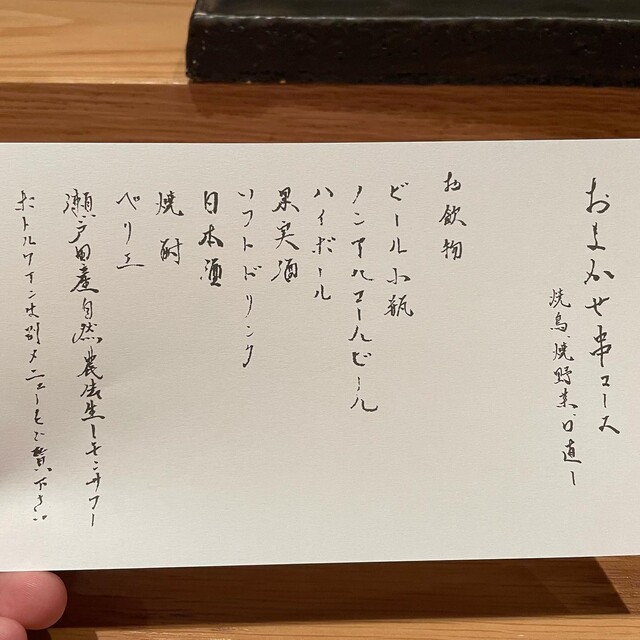 おまかせ串コース
焼鳥、焼野菜、口直し
お飲物
ビール小瓶
ノンアルコールビール
ハイボール
果実酒
ソフトドリンク
日本酒
焼酎
ペリエ
瀬戸田産自然農法生レモンサワー
ボトルワインは別メニューをご覧下さい